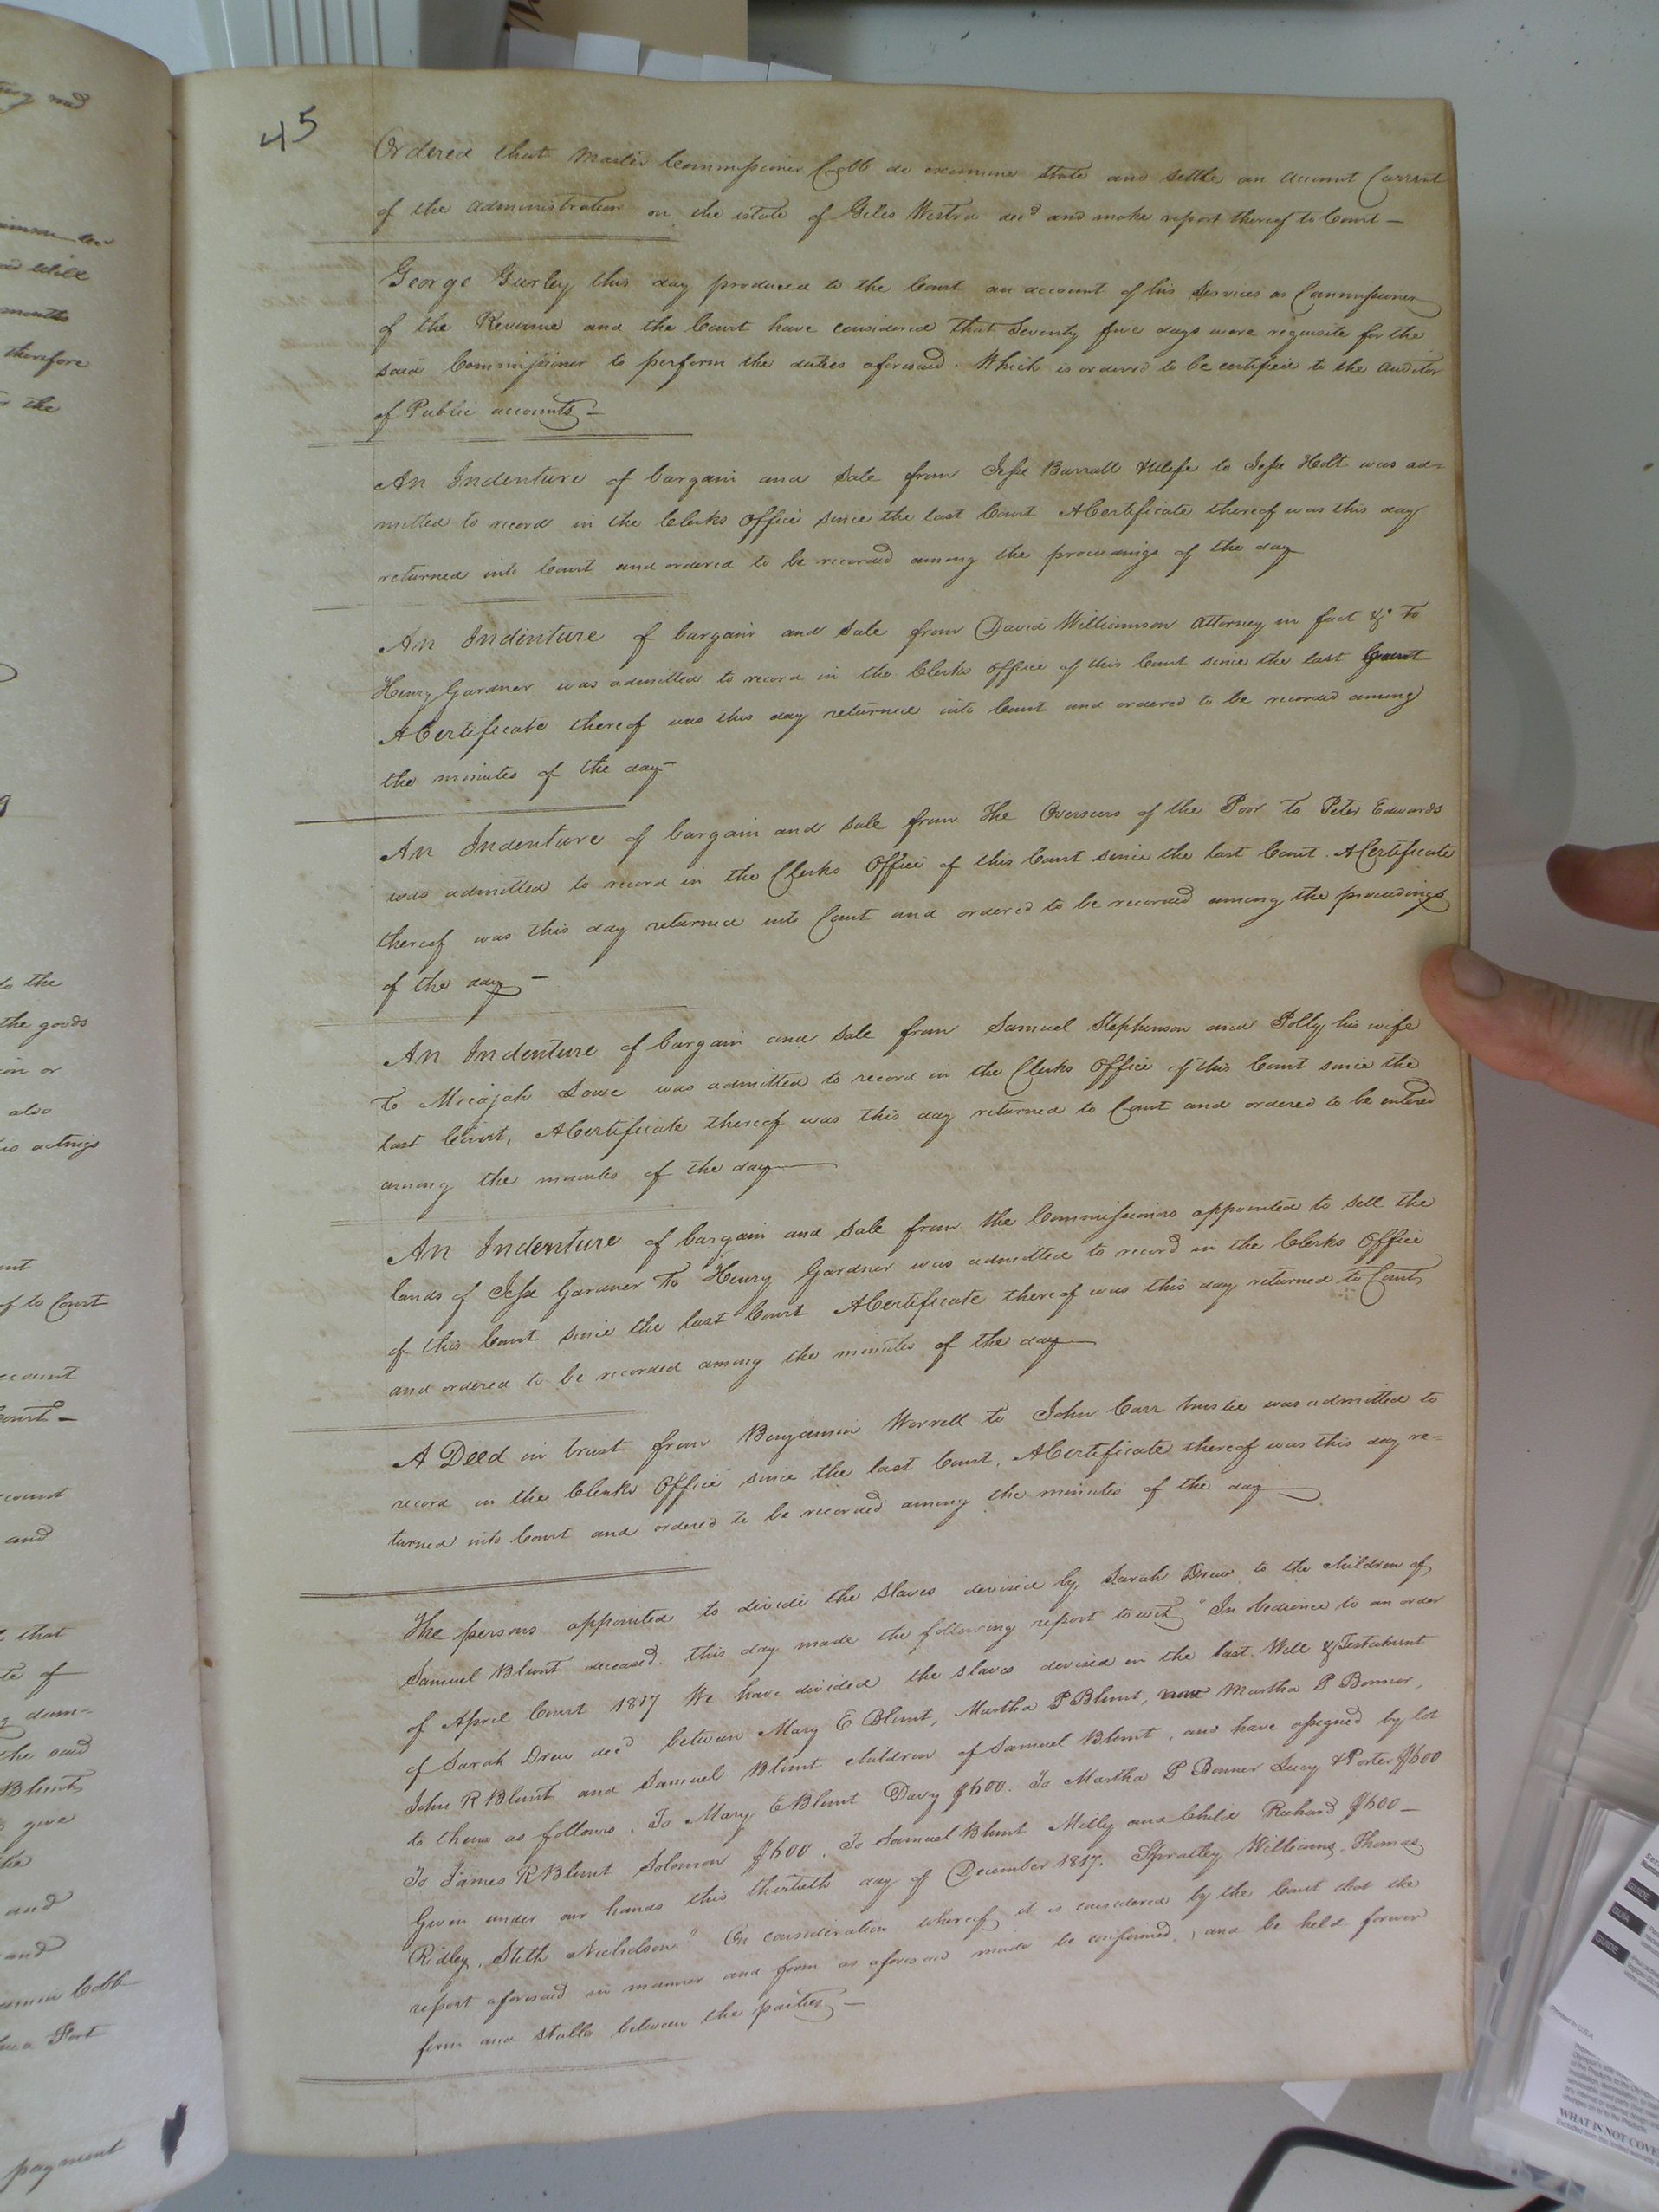 45
Ordered that Master Commissioner Cobb do examine state and settle an account Current
of the administration on the estate of Giles Westra decd and make report thereof to Court —
George Gurley this day produced to the Court an account of his services as Commissioner
of the Revenue and the Court have considered that Seventy five days were requisite for the
said Commissioner to perform the duties aforesaid. Which is ordered to be certified to the auditor
of Public accounts —
An Indenture of bargain and sale from Jesse Barrall & Wife to Jesse Holt was ad=
mitted to record in the Clerks office since the last Court A Certificate thereof was this day
returned into Court and ordered to be recorded among the proceedings of the day
An Indenture of bargain and sale from David Williamson attorney in fact &c To
Henry Gardner was admitted to record in the Clerks office of this Court since the last Court
A Certificate thereof was this day returned into Court and ordered to be recorded among
the minutes of the day —
An Indenture of bargain and sale from The Overseers of the Poor To Peter Edwards
was admitted to record in the Clerks Office of this Court since the last Court. A Certificate
thereof was this day returned into Court and ordered to be recorded among the proceedings
of the day —
An Indenture of bargain and sale from Samuel Stephenson and Polly his wife
To Micajah Lowe was admitted to record in the Clerks Office of this Court since the
last Court, A Certificate thereof was this day returned to Court and ordered to be entered
among the minutes of the day —
An Indenture of bargain and sale from the Commissioners appointed to sell the
lands of Jesse Gardner To Henry Gardner was admitted to record in the Clerks Office
of this Court since the last Court A Certificate thereof was this day returned to Court
and ordered to be recorded among the minutes of the day —
A Deed in trust from Benjamin Worrell to John Carr trustee was admitted to
record in the Clerks Office since the last Court, A Certificate thereof was this day re=
turned into Court and ordered to be recorded among the minutes of the day —
The persons appointed to divide the slaves devised by Sarah Drew to the children of
Samuel Blunt deceased this day made the following report to wit "In obedience to an order
of April Court 1817 We have divided the slaves devised in the last Will & Testament
of Sarah Drew decd between Mary E Blunt, Martha P Blunt, now Martha P Bonner,
John R Blunt and Samuel Blunt children of Samuel Blunt, and have assigned by lot
to them as follows. To Mary E Blunt Davy $600. To Martha P Bonner Lucy & Porter $600
To James R Blunt Solomon $600. To Samuel Blunt Milly and Child Richard $600 —
Given under our hands this thirtieth day of December 1817. Spratley Williams, Thomas
Ridley, Stith Nicholson" On consideration whereof it is considered by the Court that the
report aforesaid in manner and form as aforesaid made be confirmed, and be held forever
firm and stable between the parties —